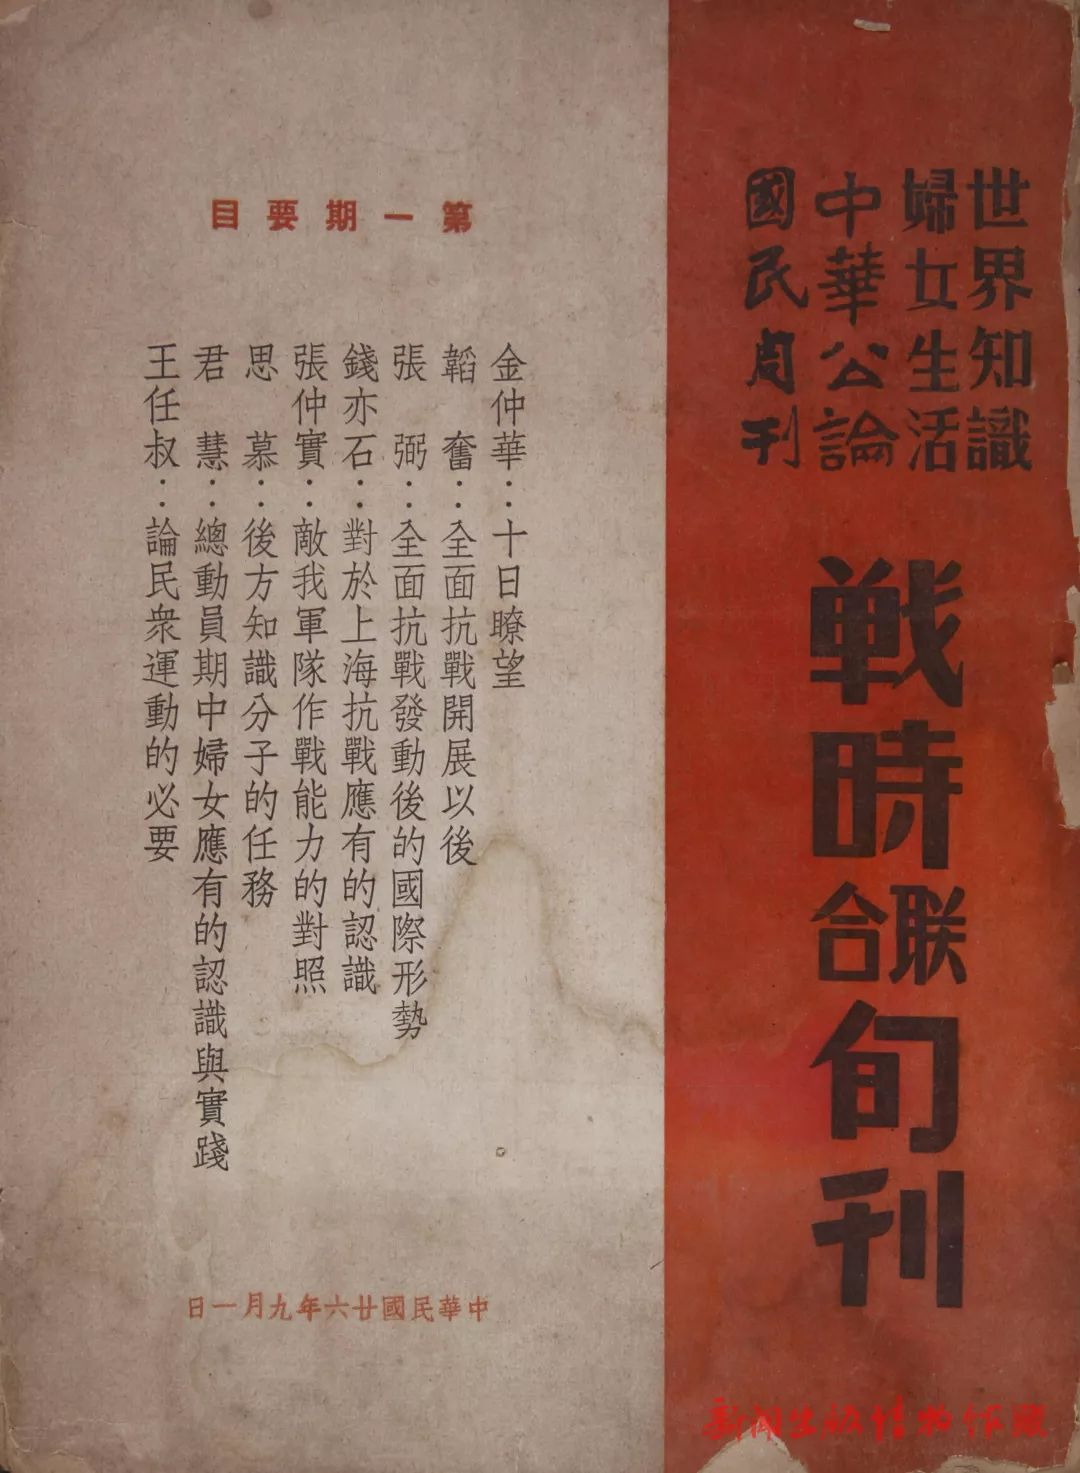 世界知識
婦女生活
中華公論
國民周刊
戰時联合旬刊
第一期要目
金仲華：十日瞭望
韜奮：全面抗戰開展以後
張弼：全面抗戰發動後的國際形勢
錢亦石：對於上海抗戰應有的認識
張仲實：敵我軍隊作戰能力的對照
思慕：後方知識分子的任務
君慧：總動員期中婦女應有的認識與實踐
王任叔：論民衆運動的必要
中華民國廿六年九月一日
新闻出版博物馆藏